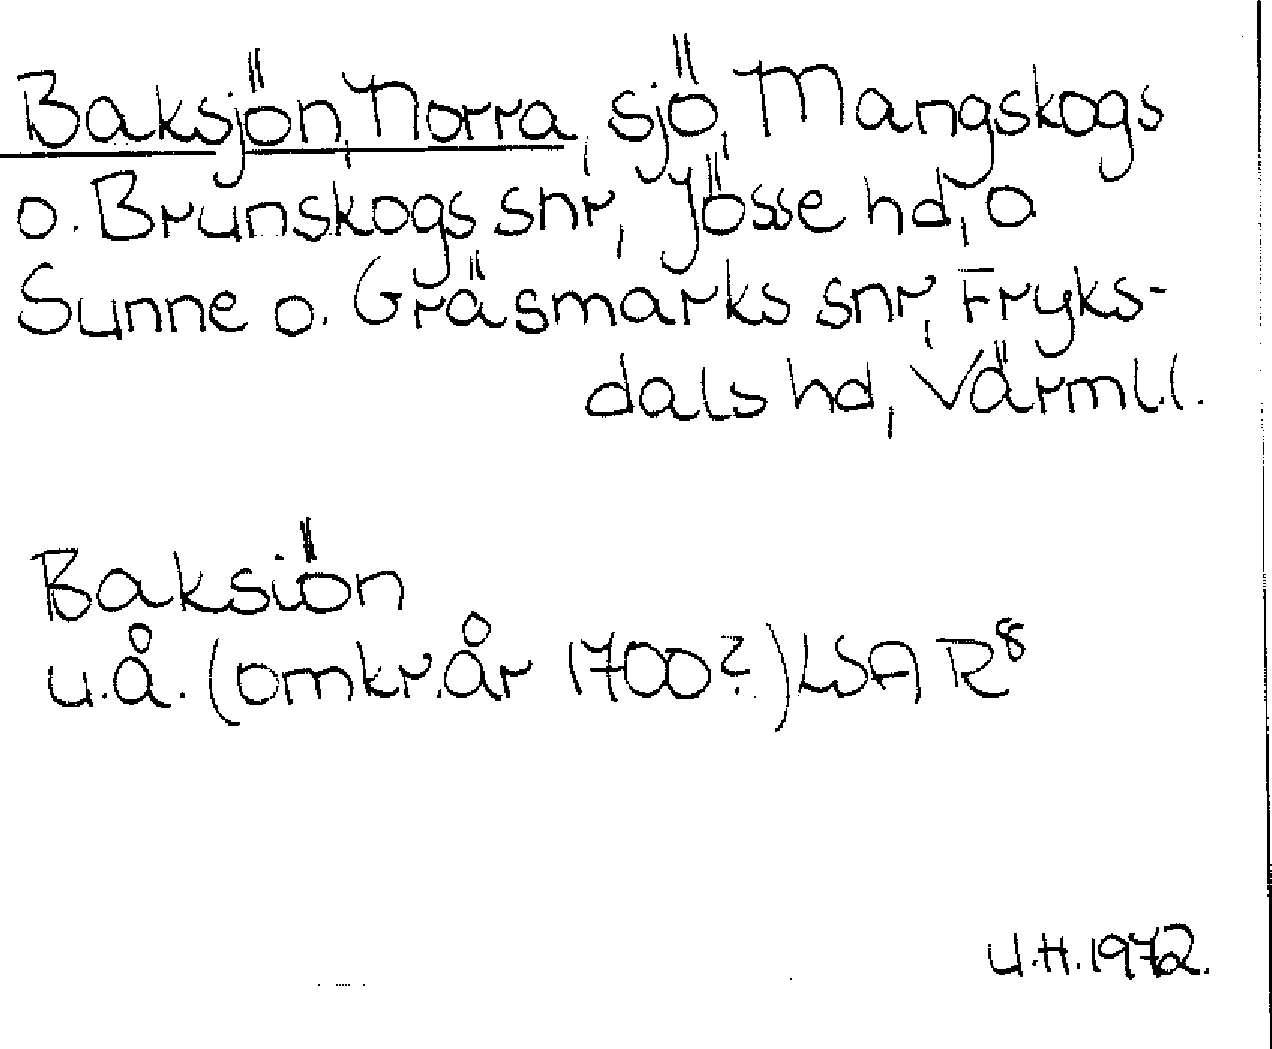 Baksjön, Norra, sjö, Mangskogs
o. Brunskogs snr, Jösse hd, o
Sunne o. Gräsmarks snr, Fryks-
dals hd, Värml.l.
Baksiön
u.å. (omkr. år 1700?) LSA R⁸
U.H. 1972.